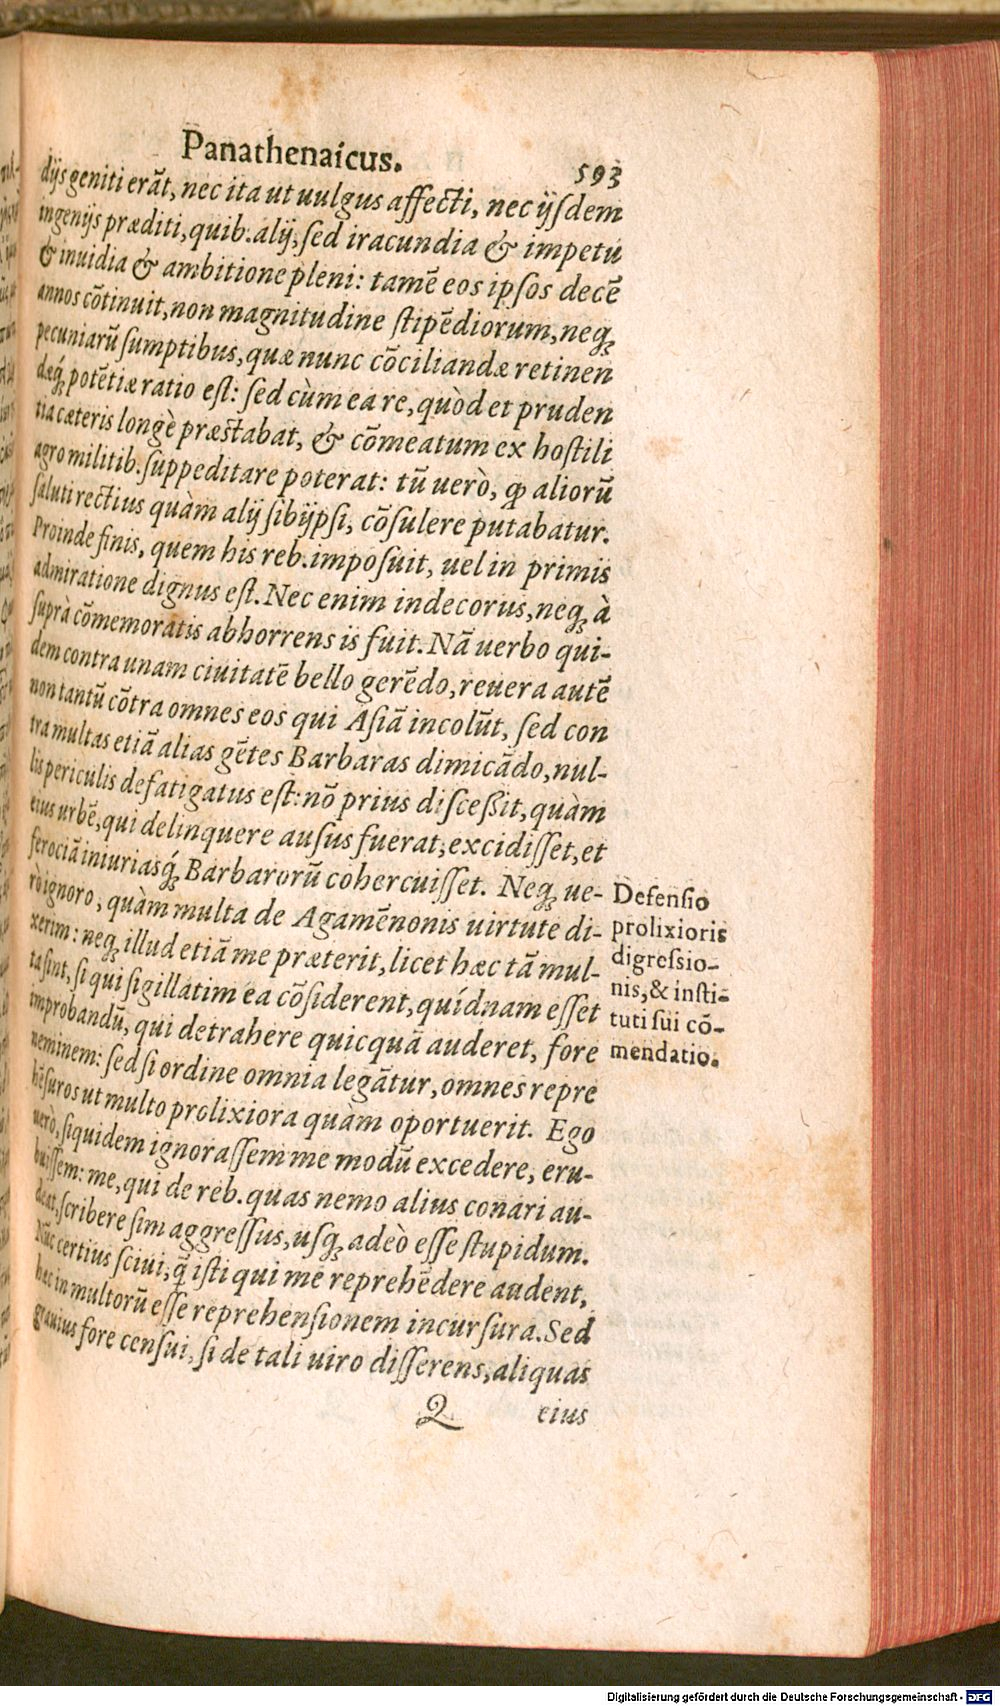 Panathenaicus.
593
dijs geniti erãt, nec ita ut uulgus affecti, nec ijsdem
ingenijs præditi, quib. alij, sed iracundia & impetu
& inuidia & ambitione pleni: tamẽ eos ipsos decẽ
annos cõtinuit, non magnitudine stipẽdiorum, neq;
pecuniarũ sumptibus, quæ nunc cõciliandæ retinen
dæq́; potẽtiæ ratio est: sed cùm ea re, quòd et pruden
tia cæteris longè præstabat, & cõmeatum ex hostili
agro militib. suppeditare poterat: tũ uerò, ꝙ aliorũ
saluti rectius quàm alij sibijpsi, cõsulere putabatur.
Proinde finis, quem his reb. imposuit, uel in primis
admiratione dignus est. Nec enim indecorus, neq; à
suprà cõmemoratis abhorrens is fuit. Nã uerbo qui-
dem contra unam ciuitatẽ bello gerẽdo, reuera autẽ
non tantũ cõtra omnes eos qui Asiã incolũt, sed con
tra multas etiã alias gẽtes Barbaras dimicãdo, nul-
lis periculis defatigatus est: nõ prius discessit, quàm
eius urbẽ, qui delinquere ausus fuerat, excidisset, et
ferociã iniuriasq́; Barbarorũ cohercuisset. Neq; ue-
rò ignoro, quàm multa de Agamẽnonis uirtute di-
xerim: neq; illud etiã me præterit, licet hæc tã mul-
ta sint, si qui sigillatim ea cõsiderent, quídnam esset
improbandũ, qui detrahere quicquã auderet, fore
neminem: sed si ordine omnia legãtur, omnes repre
hẽsuros ut multo prolixiora quàm oportuerit. Ego
uerò, siquidem ignorassem me modũ excedere, eru-
buissem: me, qui de reb. quas nemo alius conari au-
deat, scribere sim aggressus, usq; adeò esse stupidum.
Nũc certius sciui, q̃ isti qui me reprehẽdere audent,
hæc in multorũ esse reprehensionem incursura. Sed
grauius fore censui, si de tali uiro disserens, aliquas
Q eius
Defensio
prolixioris
digressio-
nis, & insti-
tuti sui cõ-
mendatio.
Digitalisierung gefördert durch die Deutsche Forschungsgemeinschaft - DFG